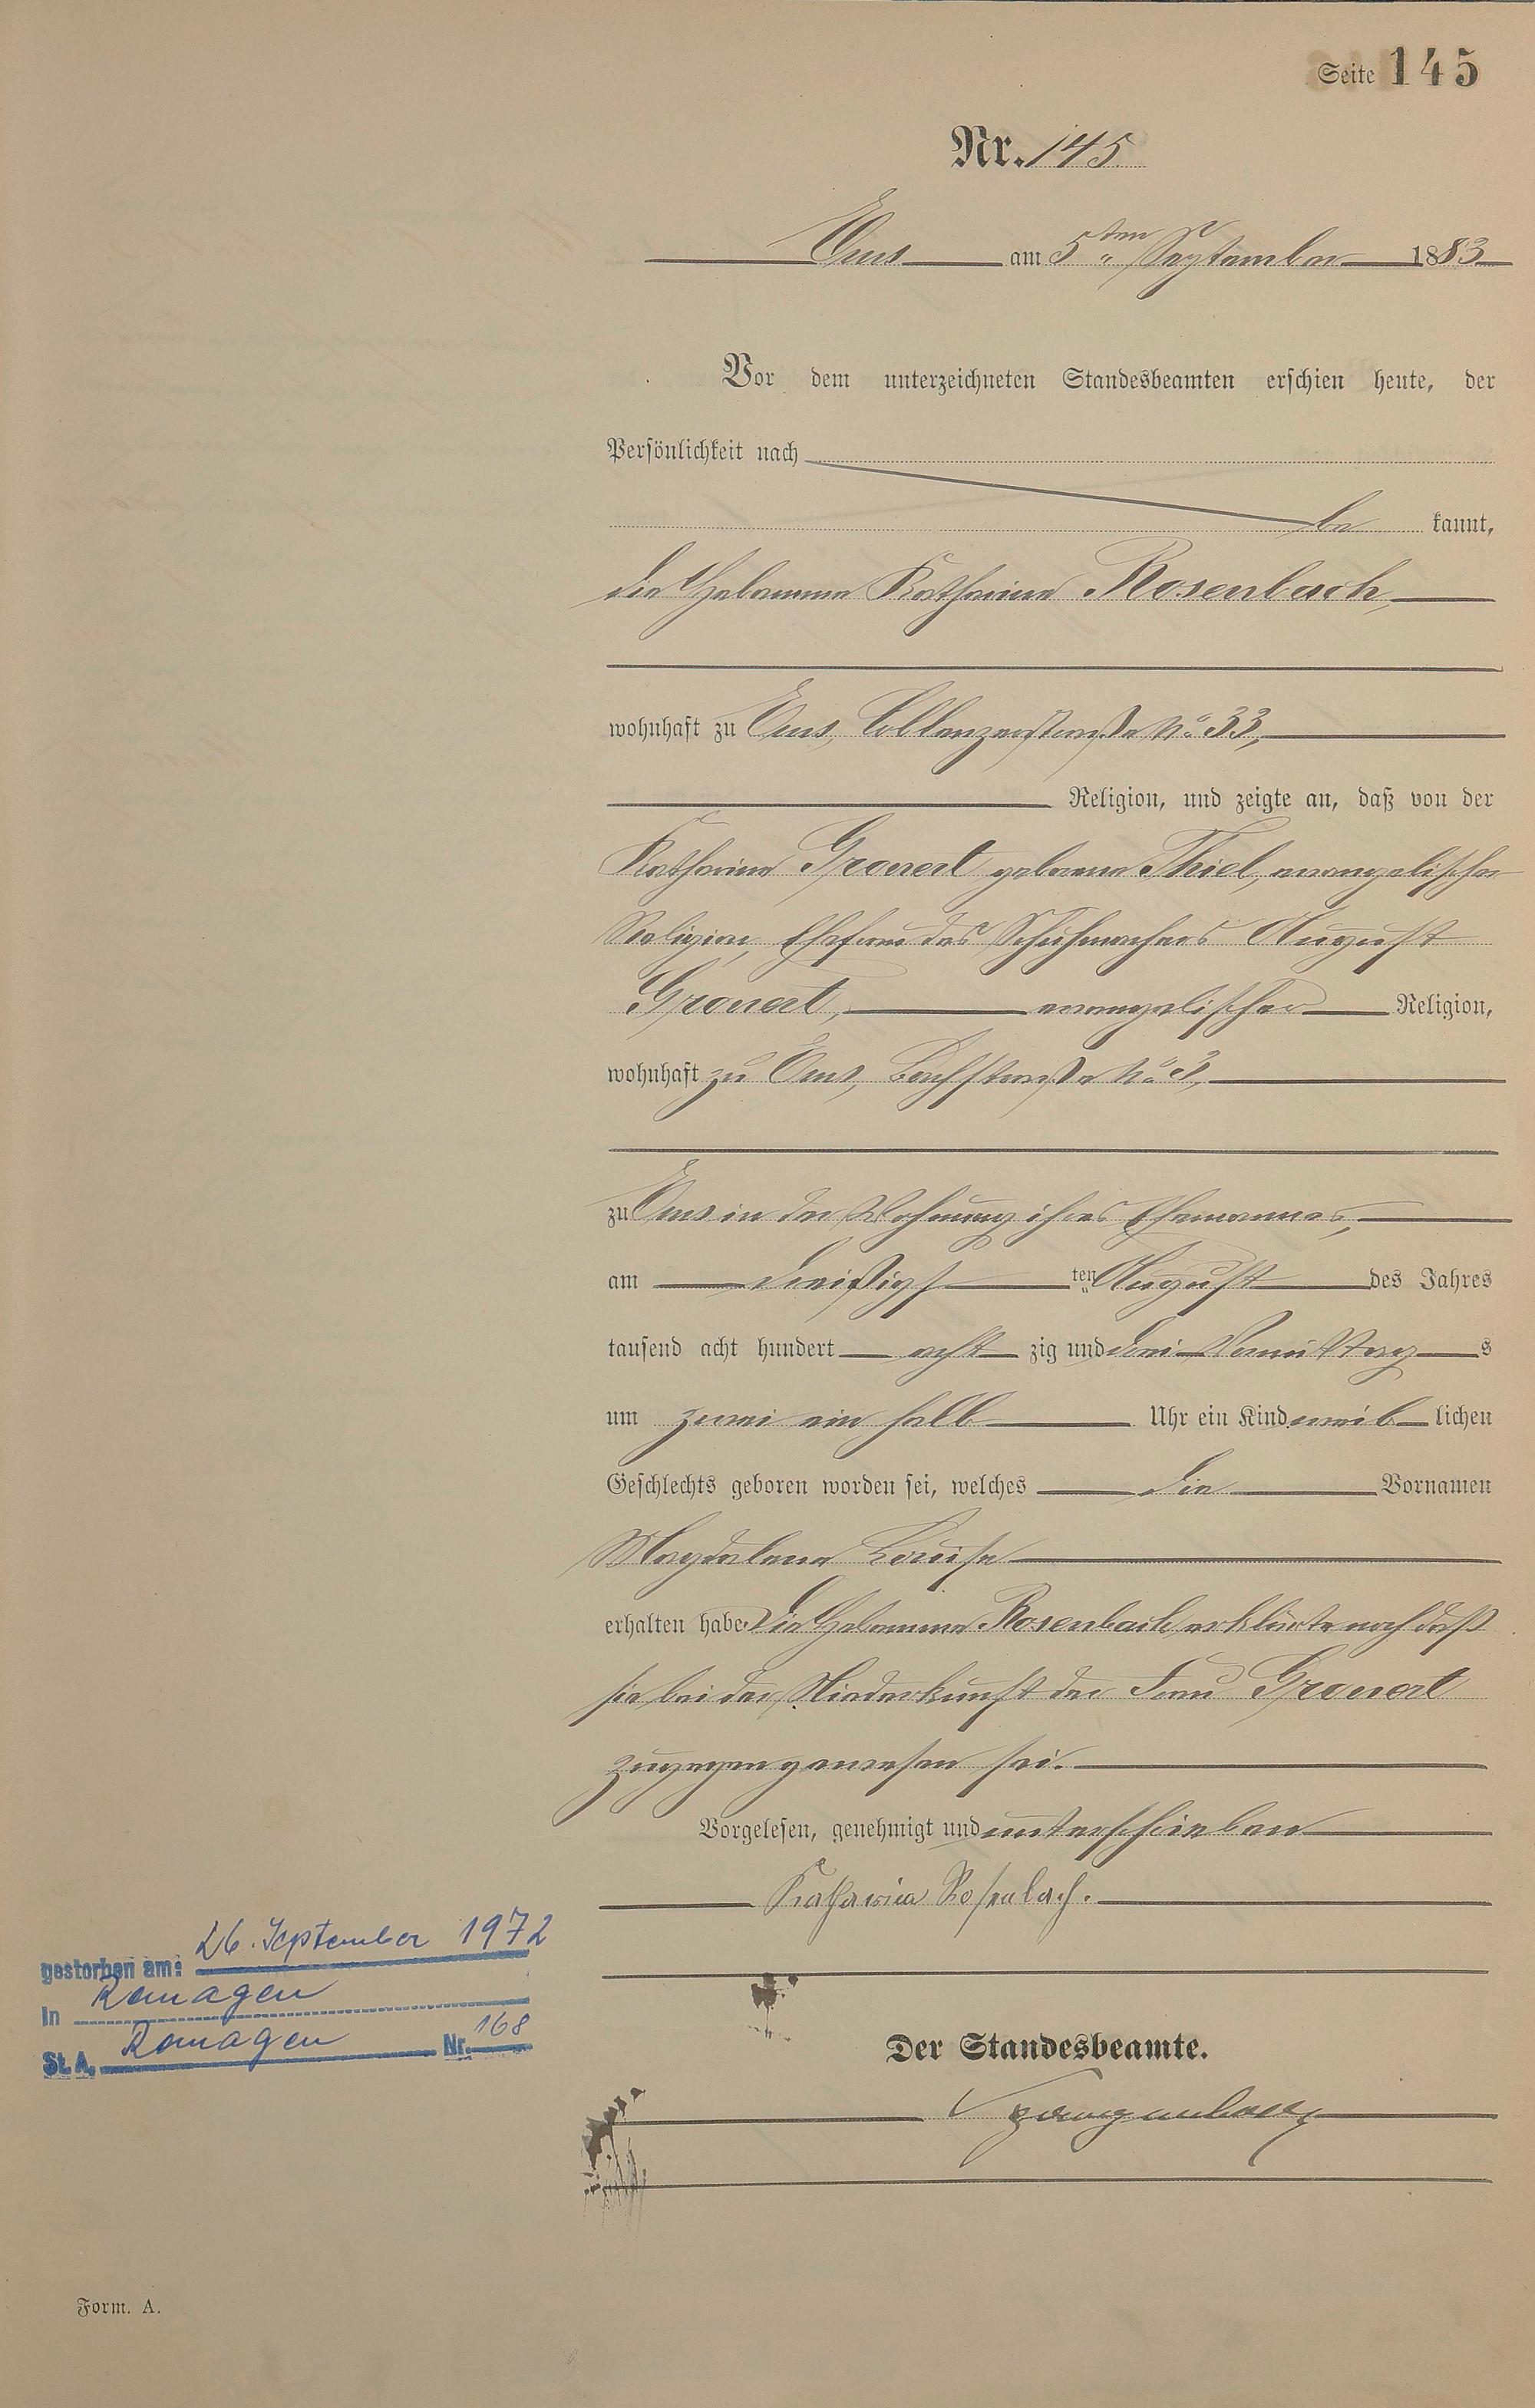 Seite 145
Nr. 145
Ems am 5ten September 1883
Vor dem unterzeichneten Standesbeamten erschien heute, der
Persönlichkeit nach
be kannt,
die Hebamme Katharina Rosenbach,
wohnhaft zu Ems, Coblenzerstraße No 33,
Religion, und zeigte an, daß von der
Katharina Gronert geborene Thiel, evangelischer
Religion, Ehefrau des Schuhmachers August
Gronert, evangelischer Religion,
wohnhaft zu Ems, Bachstraße No 3,
zu Ems in der Wohnung ihres Ehemannes,
am dreißigsten August des Jahres
tausend acht hundert acht zig und drei Vormittags
um zwei ein halb Uhr ein Kind weiblichen
Geschlechts geboren worden sei, welches die Vornamen
Magdalena Louise
erhalten habe. Die Hebamme Rosenbach erklärte noch daß
sie bei der Niederkunft der Frau Gronert
zugegen gewesen sei.
Vorgelesen, genehmigt und unterschrieben
Katharina Rosenbach.
Der Standesbeamte.
gestorben am: 26. September 1972
in Remagen
St. A. Remagen Nr. 168
Form. A.